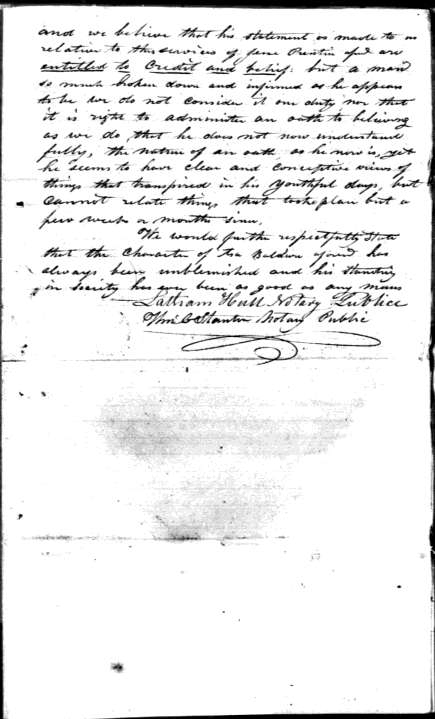 and we believe that his statement as made to us
relative to the services of Jane Prentis afsd are
entitled to Credit and belief: but a man
so much broken down and infirmed as he appears
to be we do not consider it our duty nor that
it is right to administer an oath to believing
as we do, that he does not now understand
fully, the nature of an oath, as he now is, yet
he seems to have clear and conceptive views of
things that transpired in his youthful days, but
cannot relate things that took place but a
few weeks or months since.
We would further respectfully State
that the Character of Asa Baldwin afores'd has
always been unblemished and his standing
in Society has ever been as good as any mans
Latham Hull Notary Publice
Wm C Stanton Notary Public